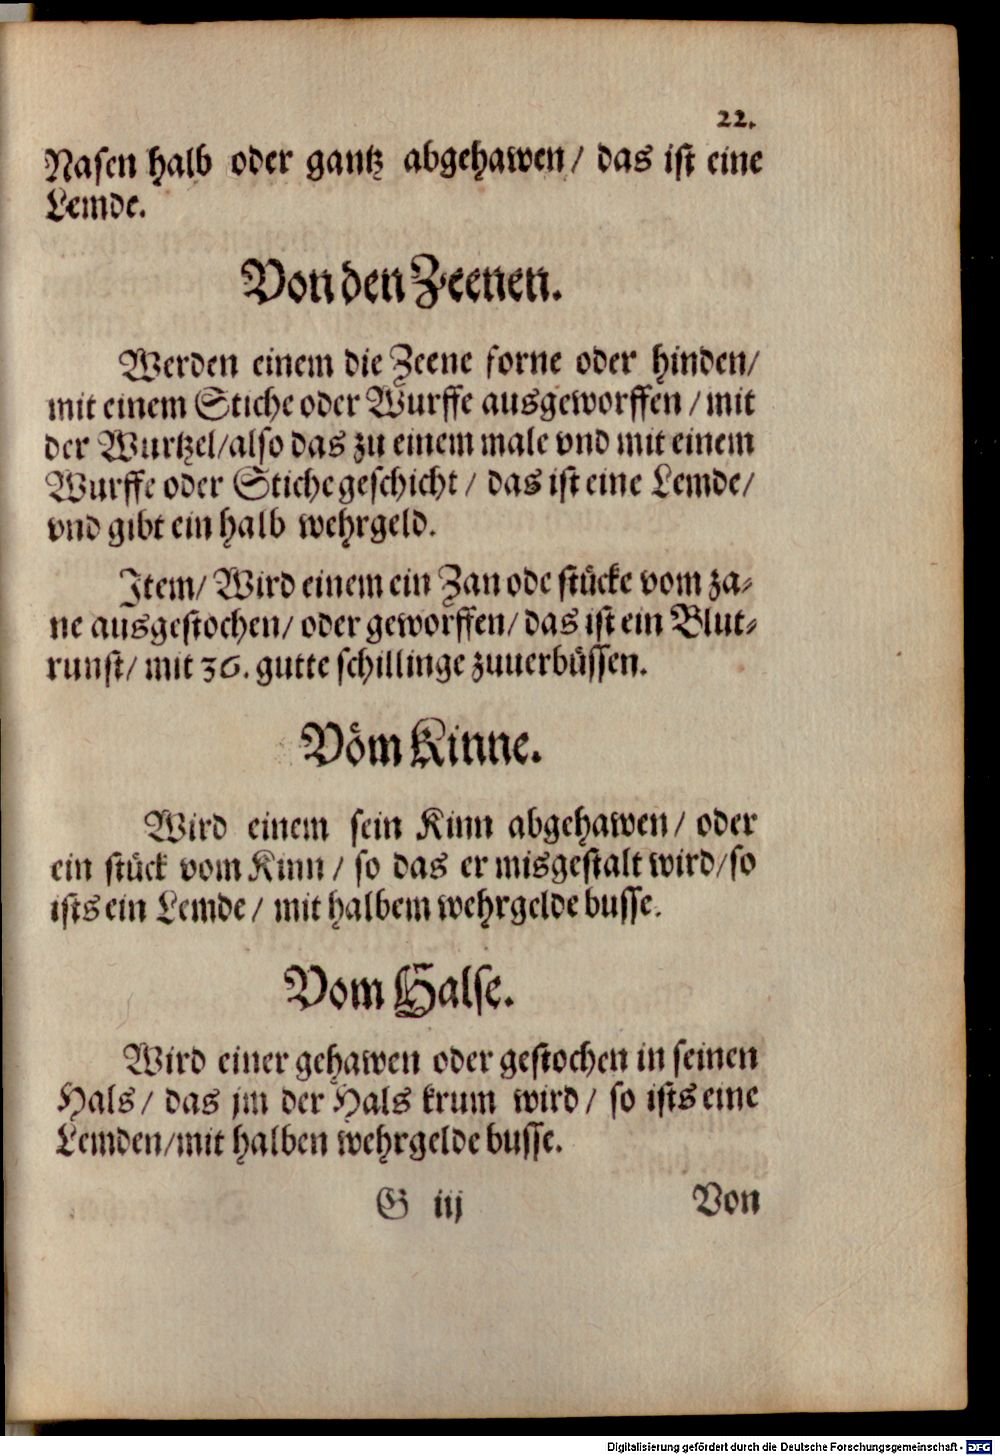 22.
Nasen halb oder gantz abgehawen/ das ist eine
Lemde.
Von den Zeenen.
Werden einem die Zeene forne oder hinden/
mit einem Stiche oder Wurffe ausgeworffen/ mit
der Wurtzel/ also das zu einem male vnd mit einem
Wurffe oder Stiche geschicht/ das ist eine Lemde/
vnd gibt ein halb wehrgeld.
Item/ Wird einem ein Zan ode stücke vom za⸗
ne ausgestochen/ oder geworffen/ das ist ein Blut⸗
runst/ mit 36. gutte schillinge zuuerbüssen.
Vöm Kinne.
Wird einem sein Kinn abgehawen/ oder
ein stück vom Kinn/ so das er misgestalt wird/ so
ists ein Lemde/ mit halbem wehrgelde busse.
Vom Halse.
Wird einer gehawen oder gestochen in seinen
Hals/ das jm der Hals krum wird/ so ists eine
Lemden/ mit halben wehrgelde busse.
G iij Von
Digitalisierung gefördert durch die Deutsche Forschungsgemeinschaft - DFG